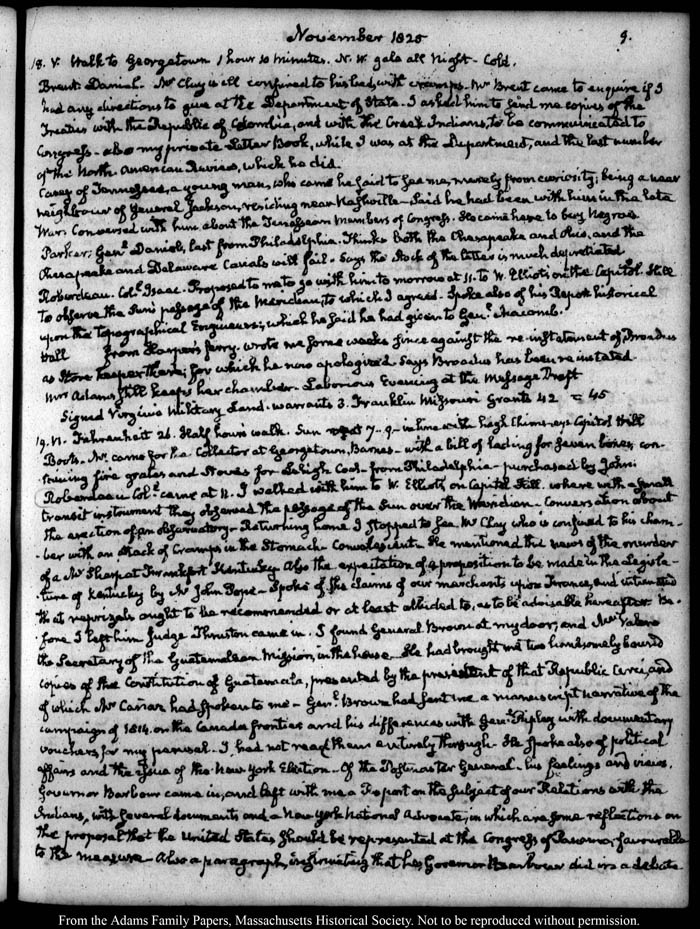 November 1825 9.
18. V. Walk to Georgetown 1 hour 10 minutes. N.W. gale all night - Cold.
Brent. Daniel - Mr Clay is ill confined to his bed, with cramps. Mr Brent came to enquire if I
had any directions to give at the Department of State. I asked him to send me copies of the
Treaties with the Republic of Colombia, and with the Creek Indians, to be communicated to
Congress - also my private Letter Book, while I was at the Department, and the last number
of the North American Review, which he did.
Casey of Tennessee, a young man, who came he said to see me, merely from curiosity; being a near
neighbour of General Jackson, residing near Nashville - Said he had been with him in the late
War. Conversed with him about the Tennessean members of Congress. He came here to buy Negroes.
Parker, Genl Daniel, last from Philadelphia. Thinks both the Chesapeake and Ohio, and the
Chesapeake and Delaware Canals will fail - Says the Stock of the latter is much depreciated
Roberdeau. Coll Isaac. Proposed to me to go with him to morrow at 11. to W. Elliot's on the Capitol Hill
to observe the Sun's passage of the Meridian, to which I agreed. Spoke also of his Report historical
upon the Topographical Engineers; which he said he had given to Genl Macomb.
Hall from Harper's ferry. wrote me some weeks since against the re-instatement of Broadus
as Store keeper there; for which he now apologized. Says Broadus has been reinstated.
Mrs Adams still keeps her chamber - Laborious Evening at the Message Draft
Signed Virginia military Land-warrants 3. Franklin Missouri Grants 42 = 45
19. VI. Fahrenheit 26. Half hour's walk. Sun 7-9 - in line with high Chimneys Capitol Hill
Boots. Mr. came for the Collector at Georgetown, Barnes - with a bill of lading for seven boxes, con-
taining fire grates and Stoves for Lehigh Coal - from Philadelphia - purchased by John.
Roberdeau Coll came at 11. I walked with him to W. Elliot's on Capitol Hill. where with a small
transit instrument they observed the passage of the Sun over the Meridian - Conversation about
the erection of an observatory - Returning home I stopped to see Mr Clay who is confined to his cham-
ber with an attack of Cramps in the Stomach. Convalescent - He mentioned the news of the murder
of a Mr Sharp at Frankfort Kentucky Also the expectation of a proposition to be made in the Legisla-
ture of Kentucky by Mr John Pope - Spoke of the Claims of our merchants upon France, and intimated
that reprisals ought to be recommended or at least alluded to, as to be advisable hereafter. Be-
fore I left him Judge Thruston came in. I found General Brown at my door, and Mr Valero
the Secretary of the Guatemalean Mission, in the house. He had brought me two handsomely bound
copies of the Constitution of Guatemala, presented by the president of that Republic Arce, and
of which Mr Canaz had spoken to me - Genl Brown had sent me a manuscript narrative of the
campaign of 1814. on the Canada frontier and his differences with Genl Ripley with documentary
vouchers, for my perusal. I had not read them entirely through - He spoke also of political
affairs and the issue of the New York Election - Of the Postmaster General - his feelings and views.
Governor Barbour came in, and left with me a Report on the Subject of our Relations with the
Indians, with several documents and a New York National Advocate; in which are some reflections on
the proposal that the United States should be represented at the Congress of Panama, favourable
to the measure - Also a paragraph, insinuating that he, Governor Barbour did in a delicate
From the Adams Family Papers, Massachusetts Historical Society. Not to be reproduced without permission.